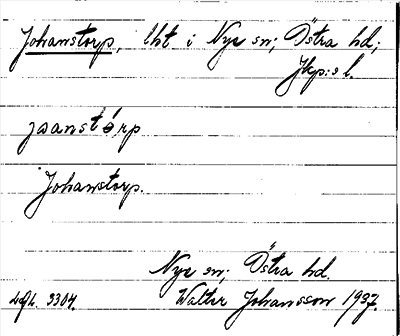 Johanstorp, lht i Nye sn; Östra hd;
Jkp:s l.
joanstórp
Johanstorp.
Nye sn; Östra hd.
Ldgh. 3304. Walter Johansson 1937.